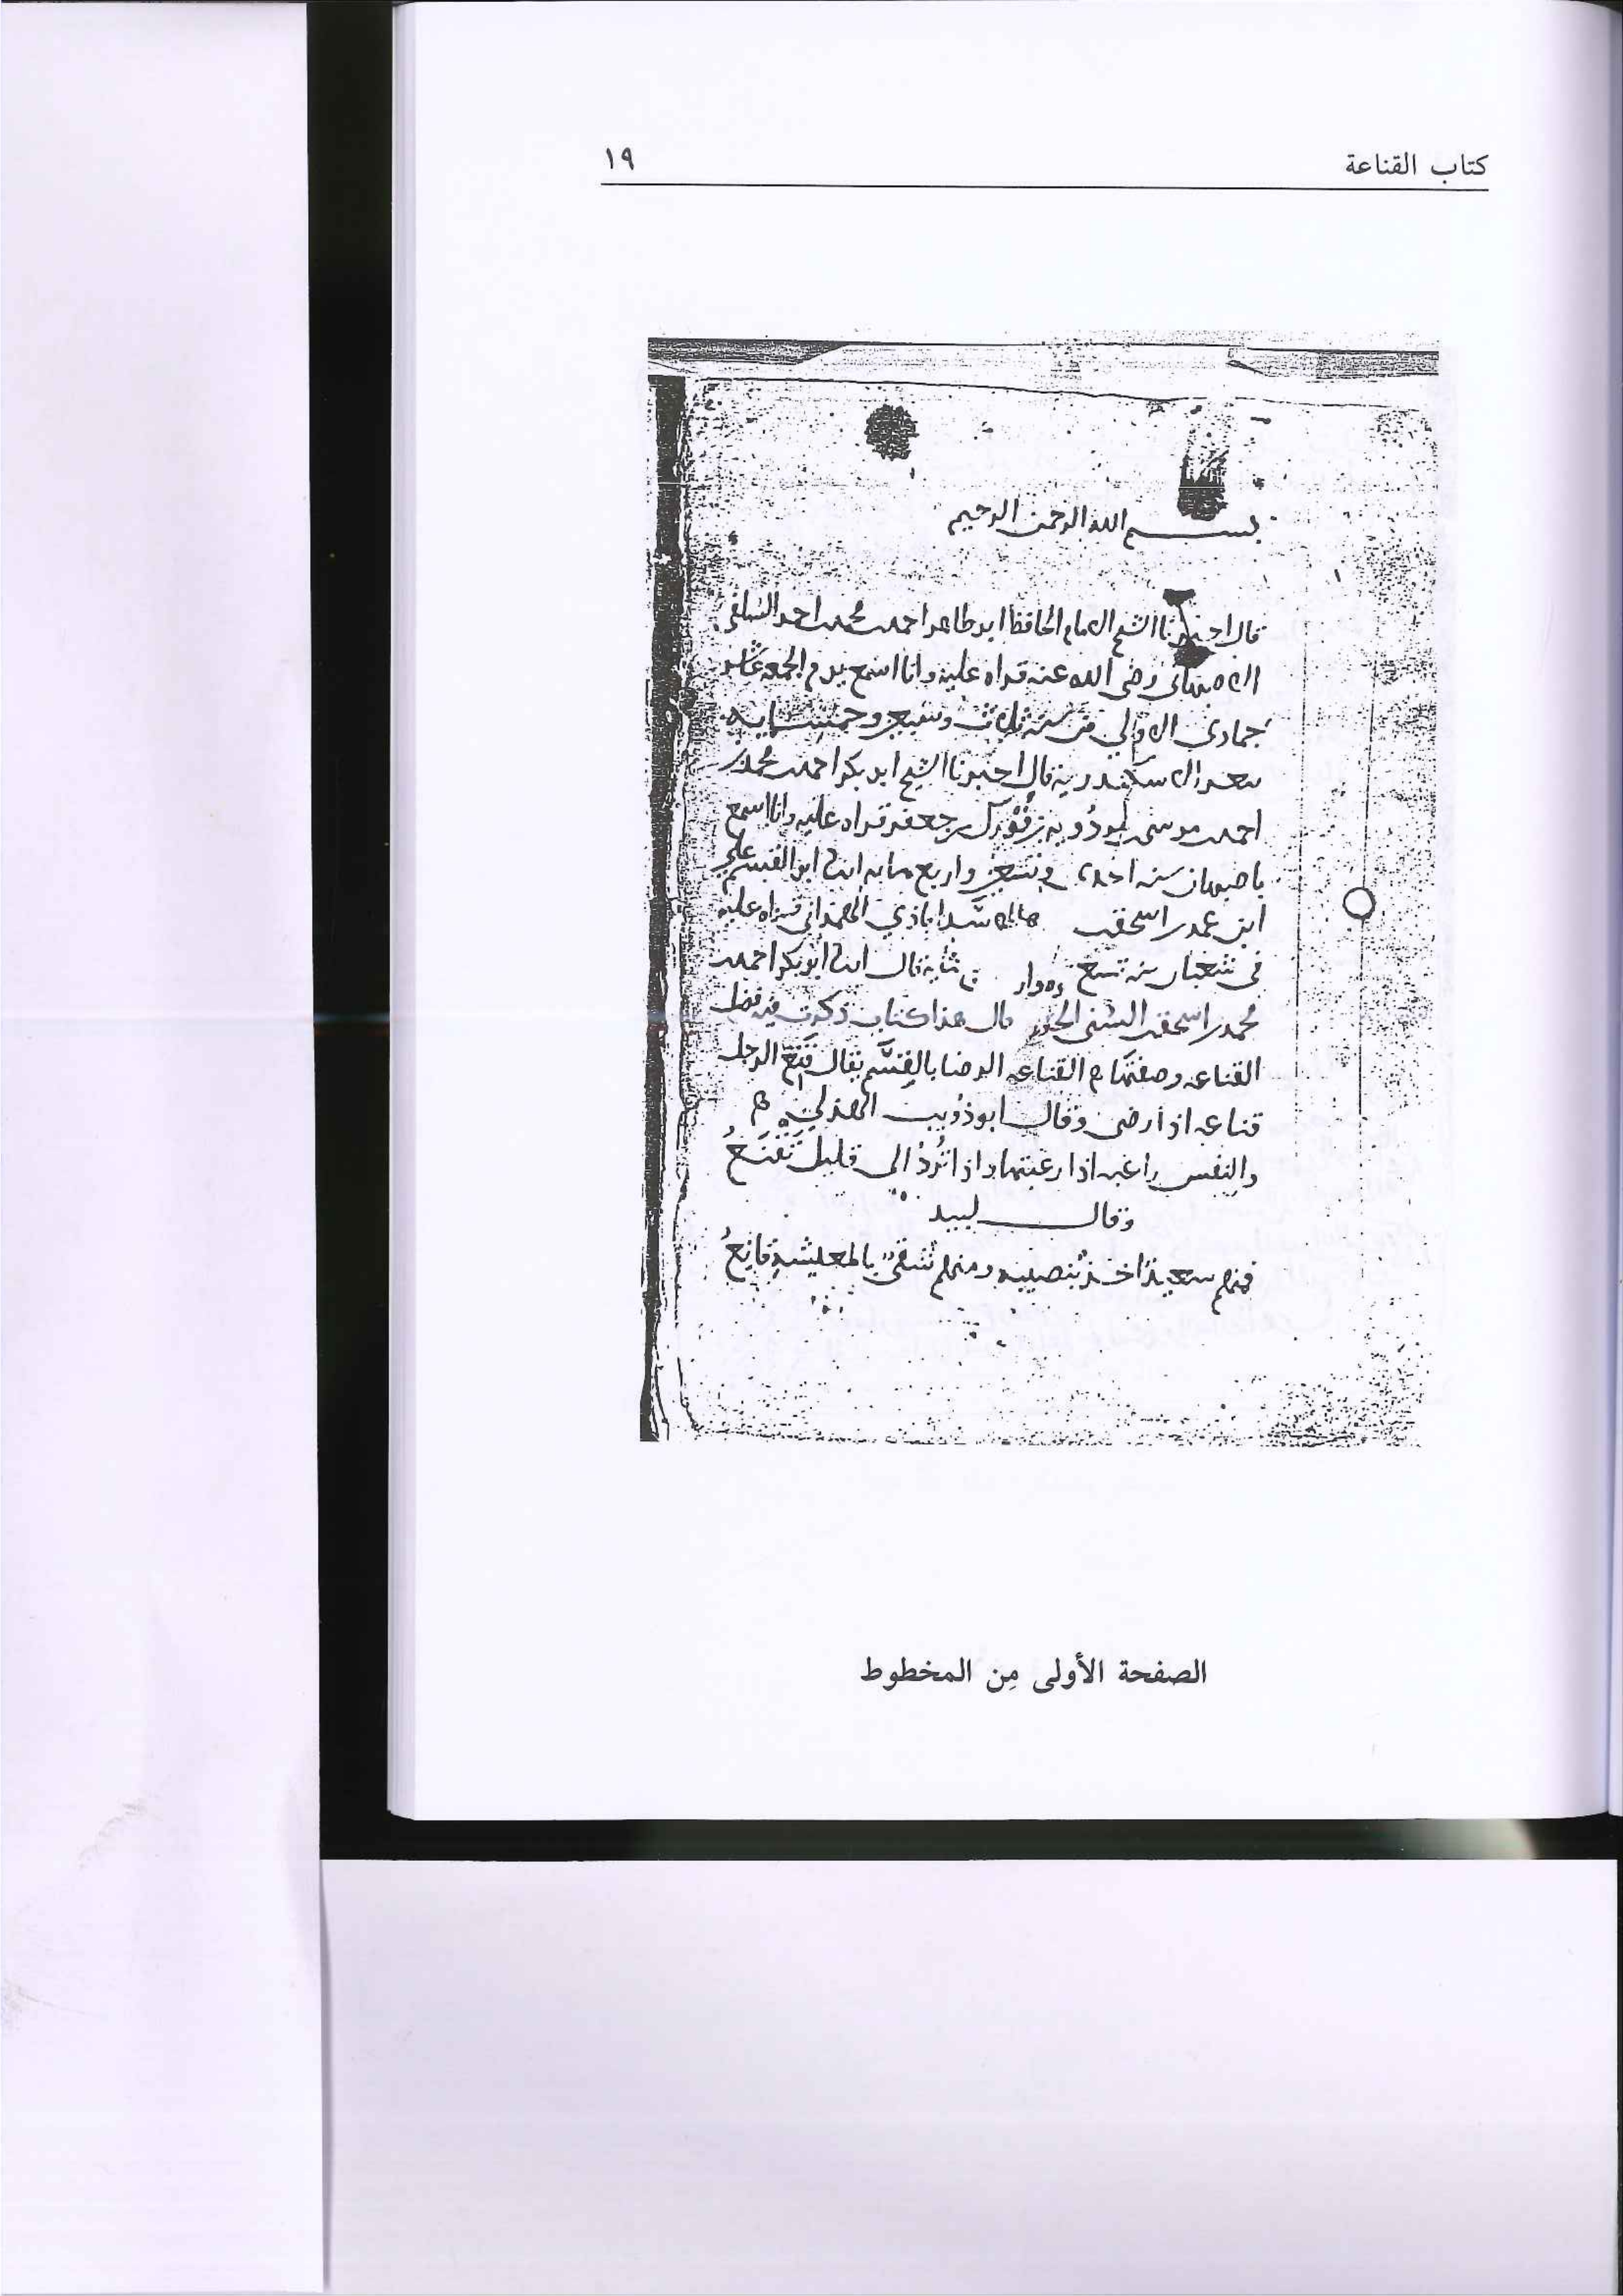 كتاب القناعة ١٩
بسم الله الرحمن الرحيم
قال اخبرنا الشيخ الامام الحافظ ابو طاهر احمد بن محمد بن احمد السلفي
الاصبهاني رضي الله عنه قراه عليه وانا اسمع يوم الجمعه
جمادى الاولي من سنه ثلاث وخمس مايه
الاسكندريه قال اخبرنا الشيخ ابو بكر احمد بن محمد بن
احمد بن موسى بن جعفر قراه عليه وانا اسمع
باصبهان سنه احدى واربع مايه ابنا ابو القسم علي
ابن عمر بن اسحق قراه عليه
في شعبان سنه تسع قال ابنا ابو بكر احمد بن
محمد بن اسحق السني قال هذا كتاب ذكرت فيه فضل
القناعه وصفتها القناعه الرضا بالقسم يقال قنع الرجل
قناعه اذا رضى وقال ابو ذؤيب الهذلي
والنفس راغبه اذا رغبتها واذا تُرَدُّ الى قليل تَقْنَعُ
وقال لبيد
فمنهم سعيد اخذ بنصيبه ومنهم شقي بالمعيشة قانعُ
الصفحة الأولى مِن المخطوط